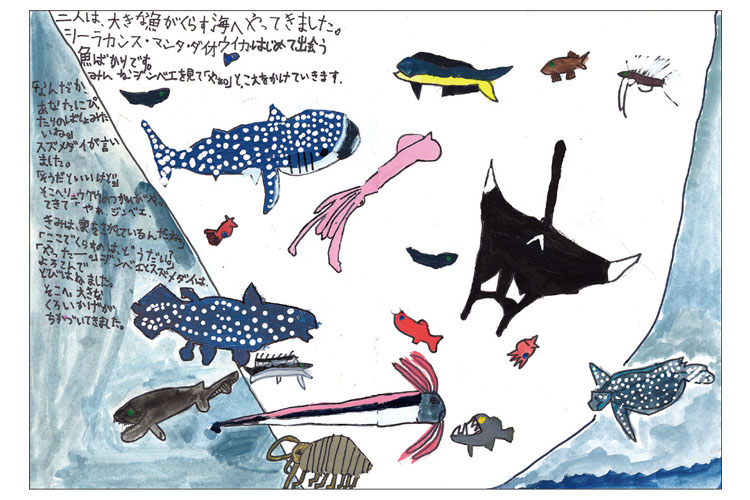 二人は、大きな魚がくらす海へやってきました。
シーラカンス・マンタ・ダイオウイカはじめて出会う
魚ばかりです。
みんながジンベエを見て「やあ」とこえをかけていきます。
「なんだか
あなたにぴっ
たりのばしょみた
いね。」
スズメダイが言い
ました。
「そうだといいけど。」
そこへリュウグウのつかいがや
てきて「やあ、ジンベエ、
きみは、家をさがしているんだね。
「ここでくらすのは、どうだい？」
「やったー。」ジンベエとスズメダイは、
よろこんで
とびはねました。
そこへ、大きな
くろいかげが
ちかづいてきました。